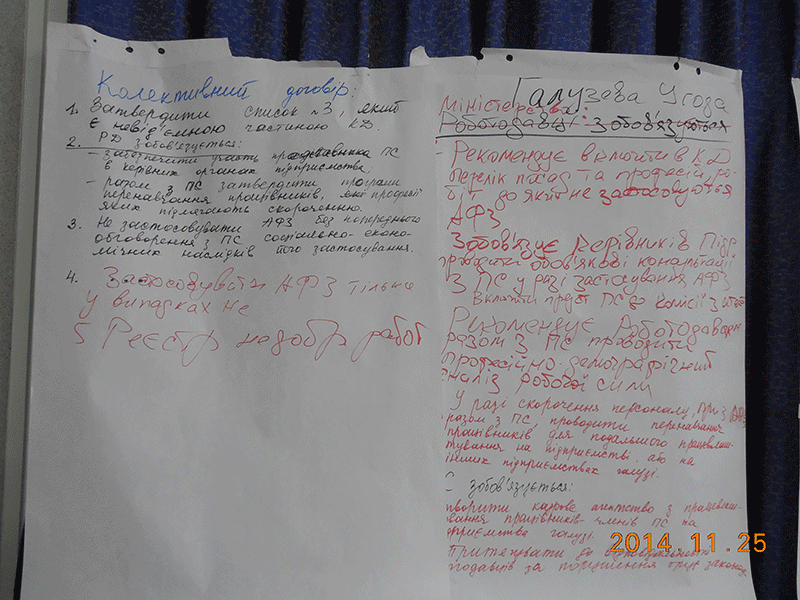 Колективний договір:
1. Затвердити список №3, який
є невід'ємною частиною КД.
2. РД зобов'язується:
- забезпечити участь працівника ПС
в керівних органах підприємства;
- разом з ПС затвердити програми
перенавчання працівників, які професії
яких підлягають скороченню.
3. Не застосовувати АФЗ без попереднього
обговорення з ПС соціально-еконо-
мічних наслідків його застосування.
4. Застосовувати АФЗ тільки
у випадках не
5 Реєстр недобр работ
Галузева Угода
Міністерство
Роботодавці: зобов'язуються
- Рекомендує включити в КД
перелік посад та професій, ро-
біт до яких не застосовуються
АФЗ
Зобов'язує керівників Підпр
проводити обов'язкові консультації
з ПС у разі застосування АФЗ
Включити предст ПС до комісії з
Рекомендує Роботодавцям
разом з ПС проводити
професійно-демографічний
аналіз робочої сили
У разі скорочення персоналу, при з
разом з ПС, проводити перенавчання
працівників для подальшого працевлаш-
тування на підприємстві або на
інших підприємствах галузі.
С зобов'язується:
творити кадрове агентство з працевлаш-
вання працівників-членів ПС на
дприємства галузі.
Притягувати до відповідальності
одавців за порушення труд законод
2014.11.25